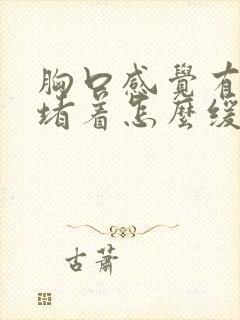 胸口感覺有
堵着怎麼緩
古蕭